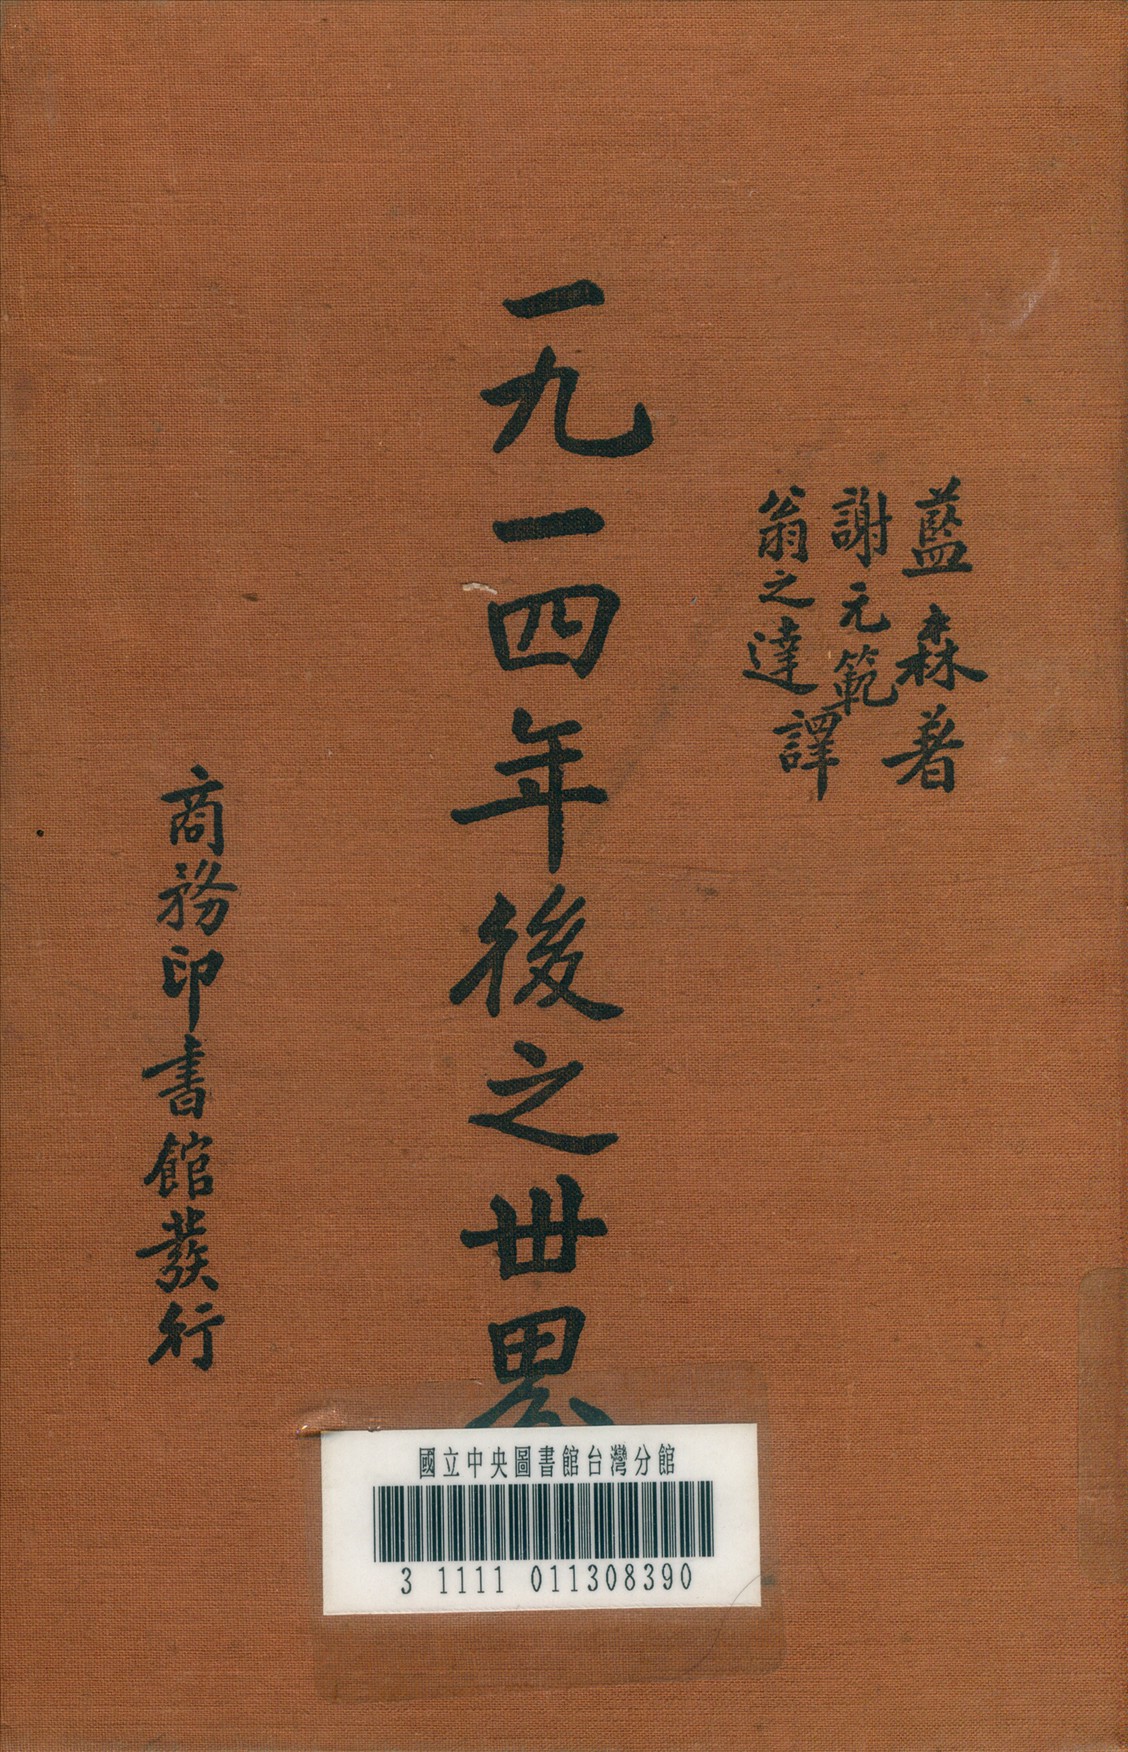 藍森著
謝元範
翁之達譯
一九一四年後之世界
商務印書館發行
國立中央圖書館台灣分館
3 1111 011308390